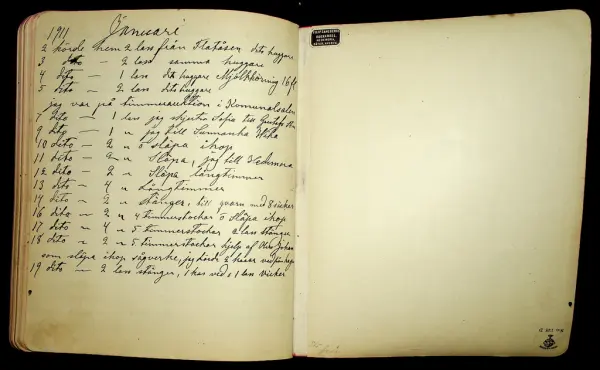 1911 Januari
2 körde hem 2 lass från Flatåsen dits huggare
3 dito — 2 lass samma huggare
4 dito — 1 lass dits huggare Mjölkkörning 16
5 dito — 2 lass dits huggare
jag var på timmerauktion i Komunalsalen
7 dito — 1 lass jag skjutsa Sofia till Gustafs
9 dito — 1 " jag till Hilka
10 dito — 2 " o släpa ihop
11 dito — 2 " Släpa, jag till Hedemora
12 dito — 2 " Släpa långtimmer
13 dito — 4 " Långtimmer
14 dito — 2 " stänger, till qvarn med 8 säckar
16 dito — 2 " 4 timmerstockar o släpa ihop
17 dito — 4 " 5 timmerstockar 2 lass stänger
18 dito — 2 " 5 timmerstockar hjelp af Johan
som släpa ihop sågverke, jag körde 2
19 dito — 2 lass stänger, 1 lass ved o 1 lass